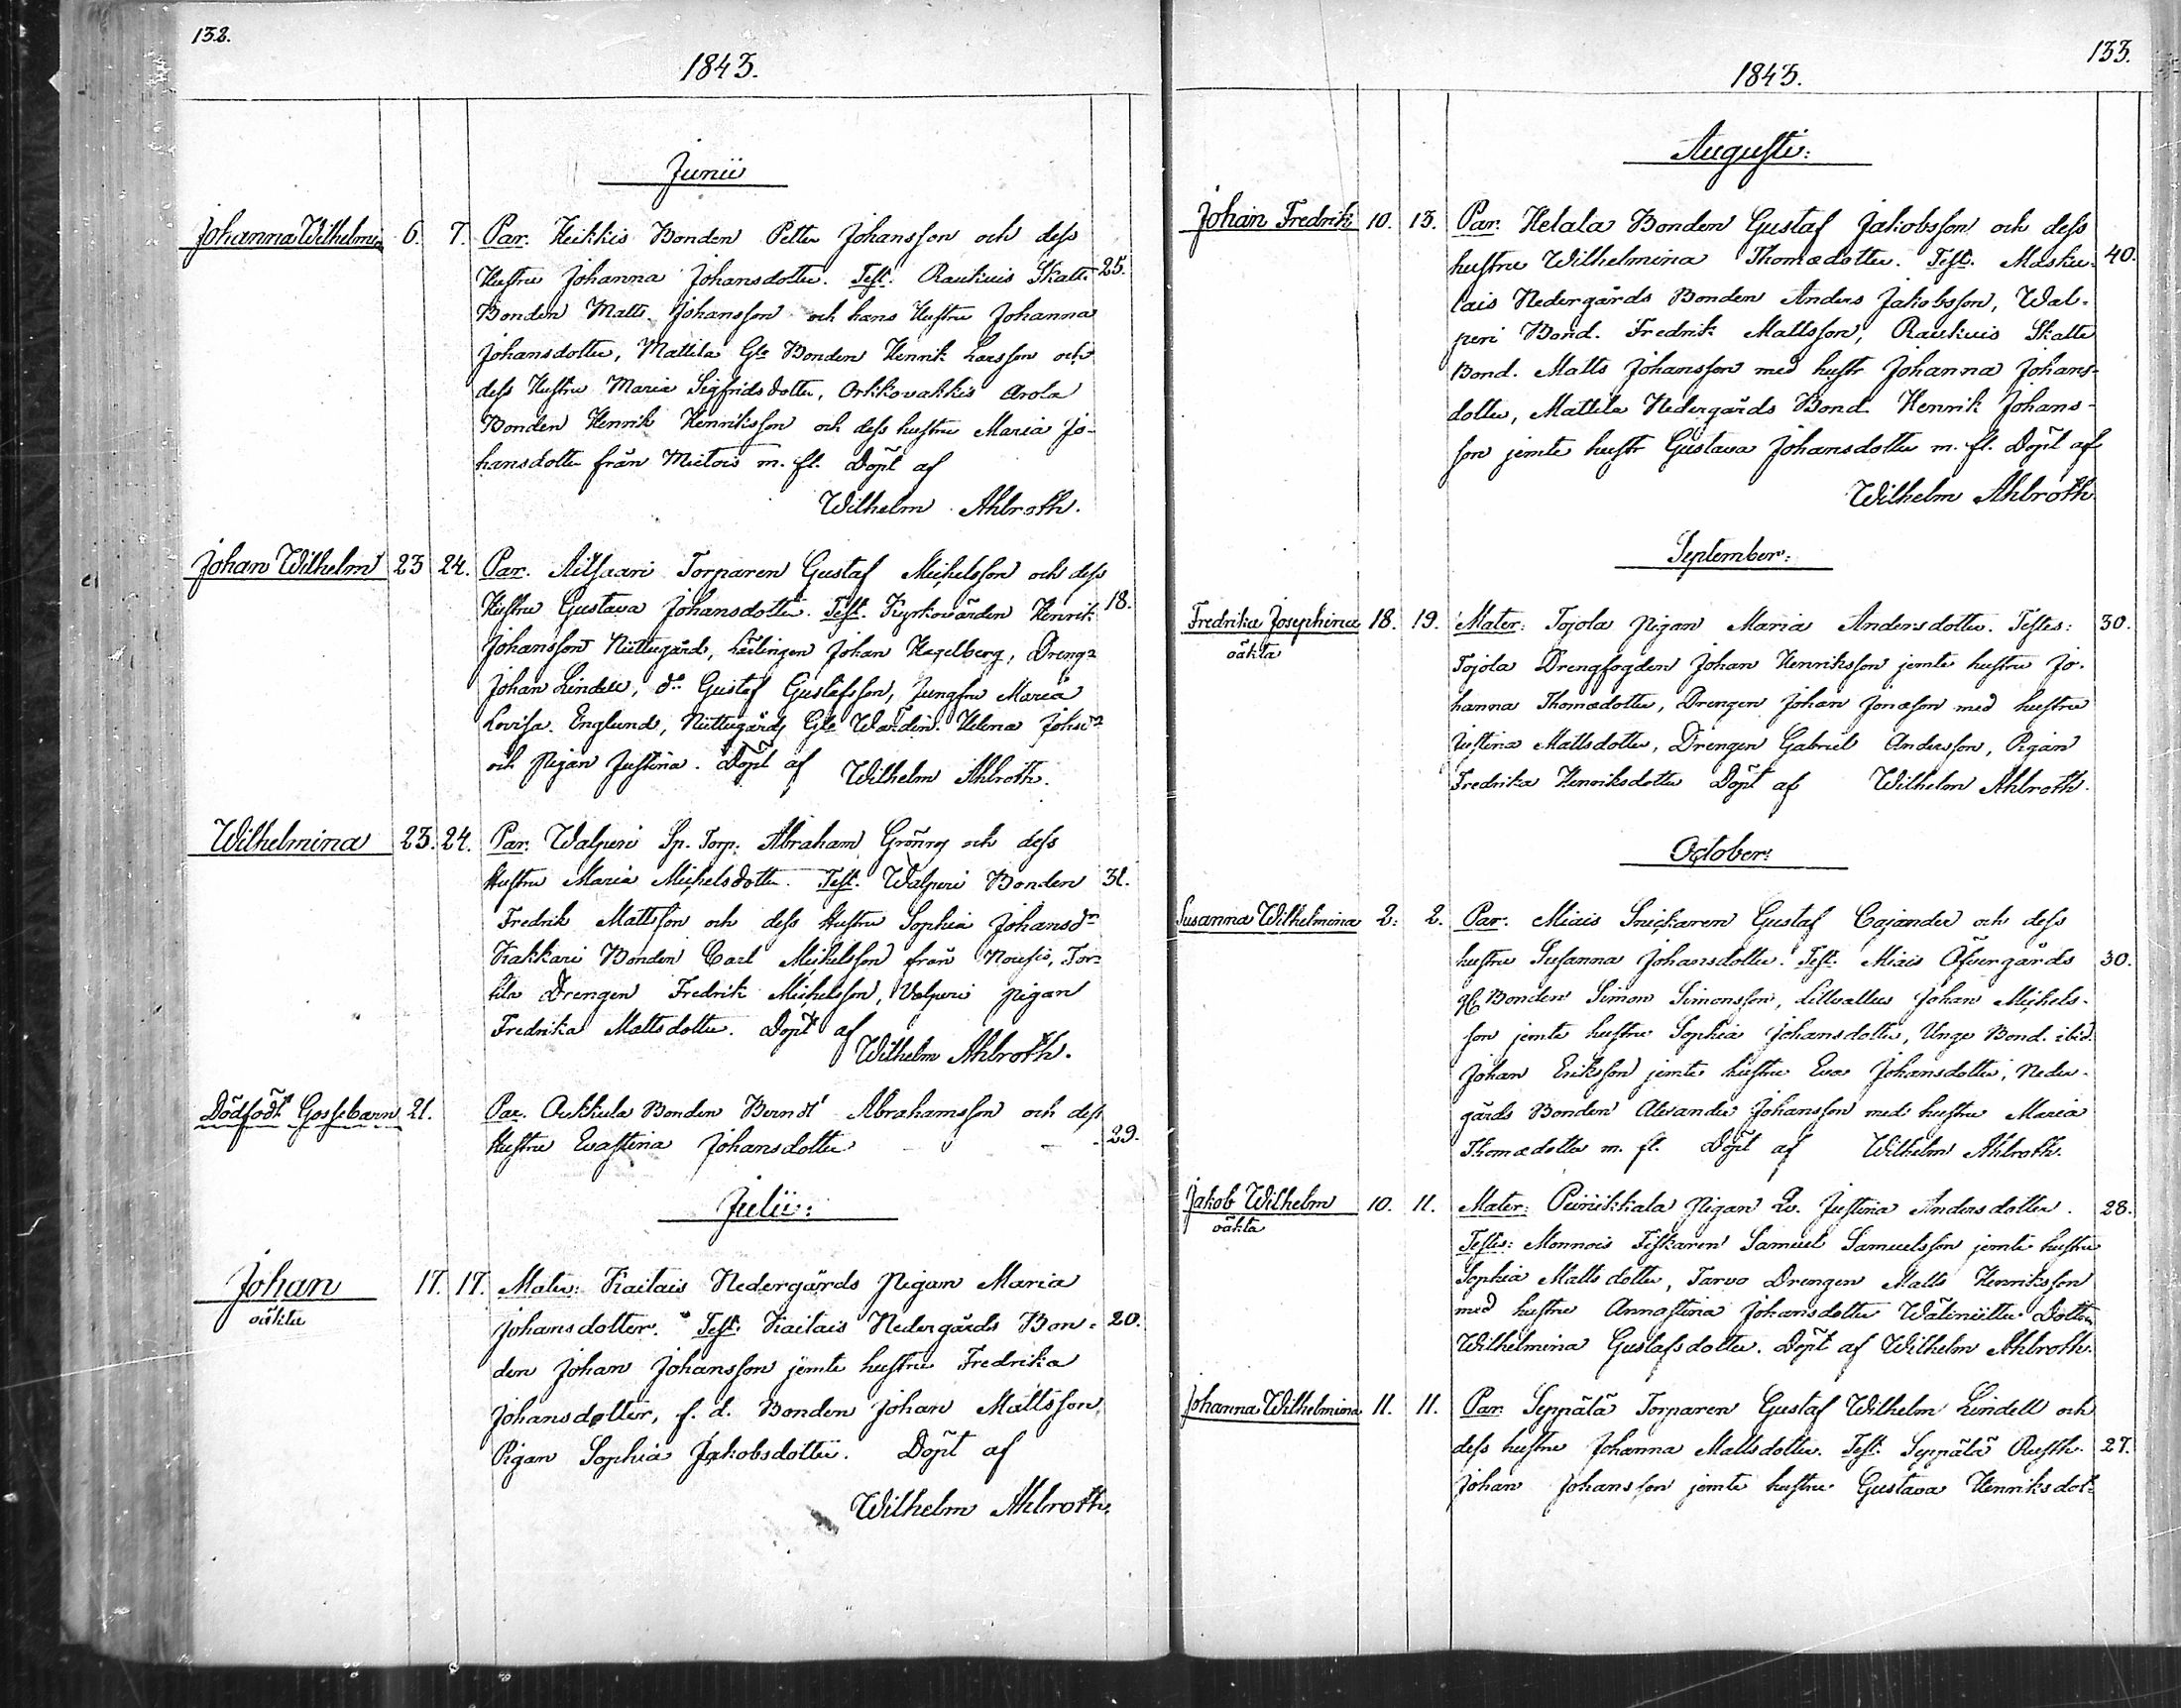 132.
1843.
Junii
Johanna Wilhelmin 6. 7. Par. Heikkis Bonden Petter Johansson och dess
Hustru Johanna Johansdotter. Test. Raukuis Skatte 25.
Bonden Matts Johansson och hans Hustru Johanna
Johansdotter, Mattila Gle Bonden Henrik Larsson och
dess Hustru Maria Sigfridsdotter, Orkkovakkis Arola
Bonden Henrik Henriksson och dess hustru Maria Jo-
hansdotter från Mietois m. fl. Döpt af
Wilhelm Ahlroth.
Johan Wilhelm 23 24. Par. Aitsaari Torparen Gustaf Michelsson och dess
Hustru Gustava Johansdotter. Test. Kyrkovärden Henrik 18.
Johansson Niittugård, Lärlingen Johan Hagelberg, Dreng:
Johan Lindell, do Gustaf Gustafsson, Jungfru Maria
Lovisa Englund, Niittugårds Gle Värdin. Helena Johsdr
och Pigan Justina. Döpt af Wilhelm Ahlroth.
Wilhelmina 23. 24. Par. Walperi Sp. Torp. Abraham Grönroj och dess
Hustru Maria Michelsdotter. Test. Walperi Bonden 31.
Fredrik Mattsson och dess Hustru Sophia Johansdr
Kakkari Bonden Carl Michelsson från Nousis, Tor-
kila Drengen Fredrik Michelsson, Valperi Pigan
Fredrika Mattsdotter. Döpt af
Wilhelm Ahlroth.
Dödfödt Gossebarn 21. Par. Aukkula Bonden Berndt Abrahamsson och dess
Hustru Evastina Johansdotter 29.
Julii:
Johan 17. 17. Mater: Kailais Nedergårds Pigan Maria
oäkta
Johansdotter. Test: Kailais Nedergårds Bon- 20.
den Johan Johansson jemte hustru Fredrika
Johansdotter, f. d. Bonden Johan Mattsson,
Pigan Sophia Jakobsdotter. Döpt af
Wilhelm Ahlroth.
133.
1843.
Augusti:
Johan Fredrik 10. 13. Par. Helala Bonden Gustaf Jakobsson och dess
hustru Wilhelmina Thomædotter. Test. Masku- 40.
lais Nedergårds Bonden Anders Jakobsson, Wal-
peri Bond. Fredrik Mattsson, Raukuis Skatte
Bond. Matts Johansson med hustr Johanna Johans-
dotter, Mattila Nedergårds Bond Henrik Johans-
son jemte hustr Gustava Johansdotter m. fl. Döpt af
Wilhelm Ahlroth
September:
Fredrika Josephina 18. 19. Mater: Tojola Pigan Maria Andersdotter. Testes: 30.
oäkta
Tojola Drengfogden Johan Henriksson jemte hustru Jo-
hanna Thomædotter, Drengen Johan Jonæson med hustru
Justina Mattsdotter, Drengen Gabriel Andersson, Pigan
Fredrika Henriksdotter Döpt af Wilhelm Ahlroth.
October:
Susanna Wilhelmina 2. 2. Par. Miais Snickaren Gustaf Cajander och dess
hustru Susanna Johansdotter. Test. Miais Öfvergårds 30.
Bonden Simon Simonsson, Lillvallus Johan Michels-
son jemte hustru Sophia Johansdotter, Unge Bond. ibid.
Johan Eriksson jemte hustru Eva Johansdotter, Neder-
gårds Bonden Alexander Johansson med hustru Maria
Thomædotter m. fl. Döpt af Wilhelm Ahlroth.
Jakob Wilhelm 10. 11. Mater: Puinikkala Pigan Justina Andersdotter. 28.
oäkta
Testes: Monnois Fiskaren Samuel Samuelsson jemte hustru
Sophia Mattsdotter, Tarvo Drengen Matts Henriksson
med hustru Annastina Johansdotter Wäliniittu Dottren
Wilhelmina Gustafsdotter. Döpt af Wilhelm Ahlroth.
Johanna Wilhelmina 11. 11. Par. Seppälä Torparen Gustaf Wilhelm Lindell och
dess hustru Johanna Mattsdotter. Test. Seppälä Rusth. 27.
Johan Johansson jemte hustru Gustava Henriksdot-